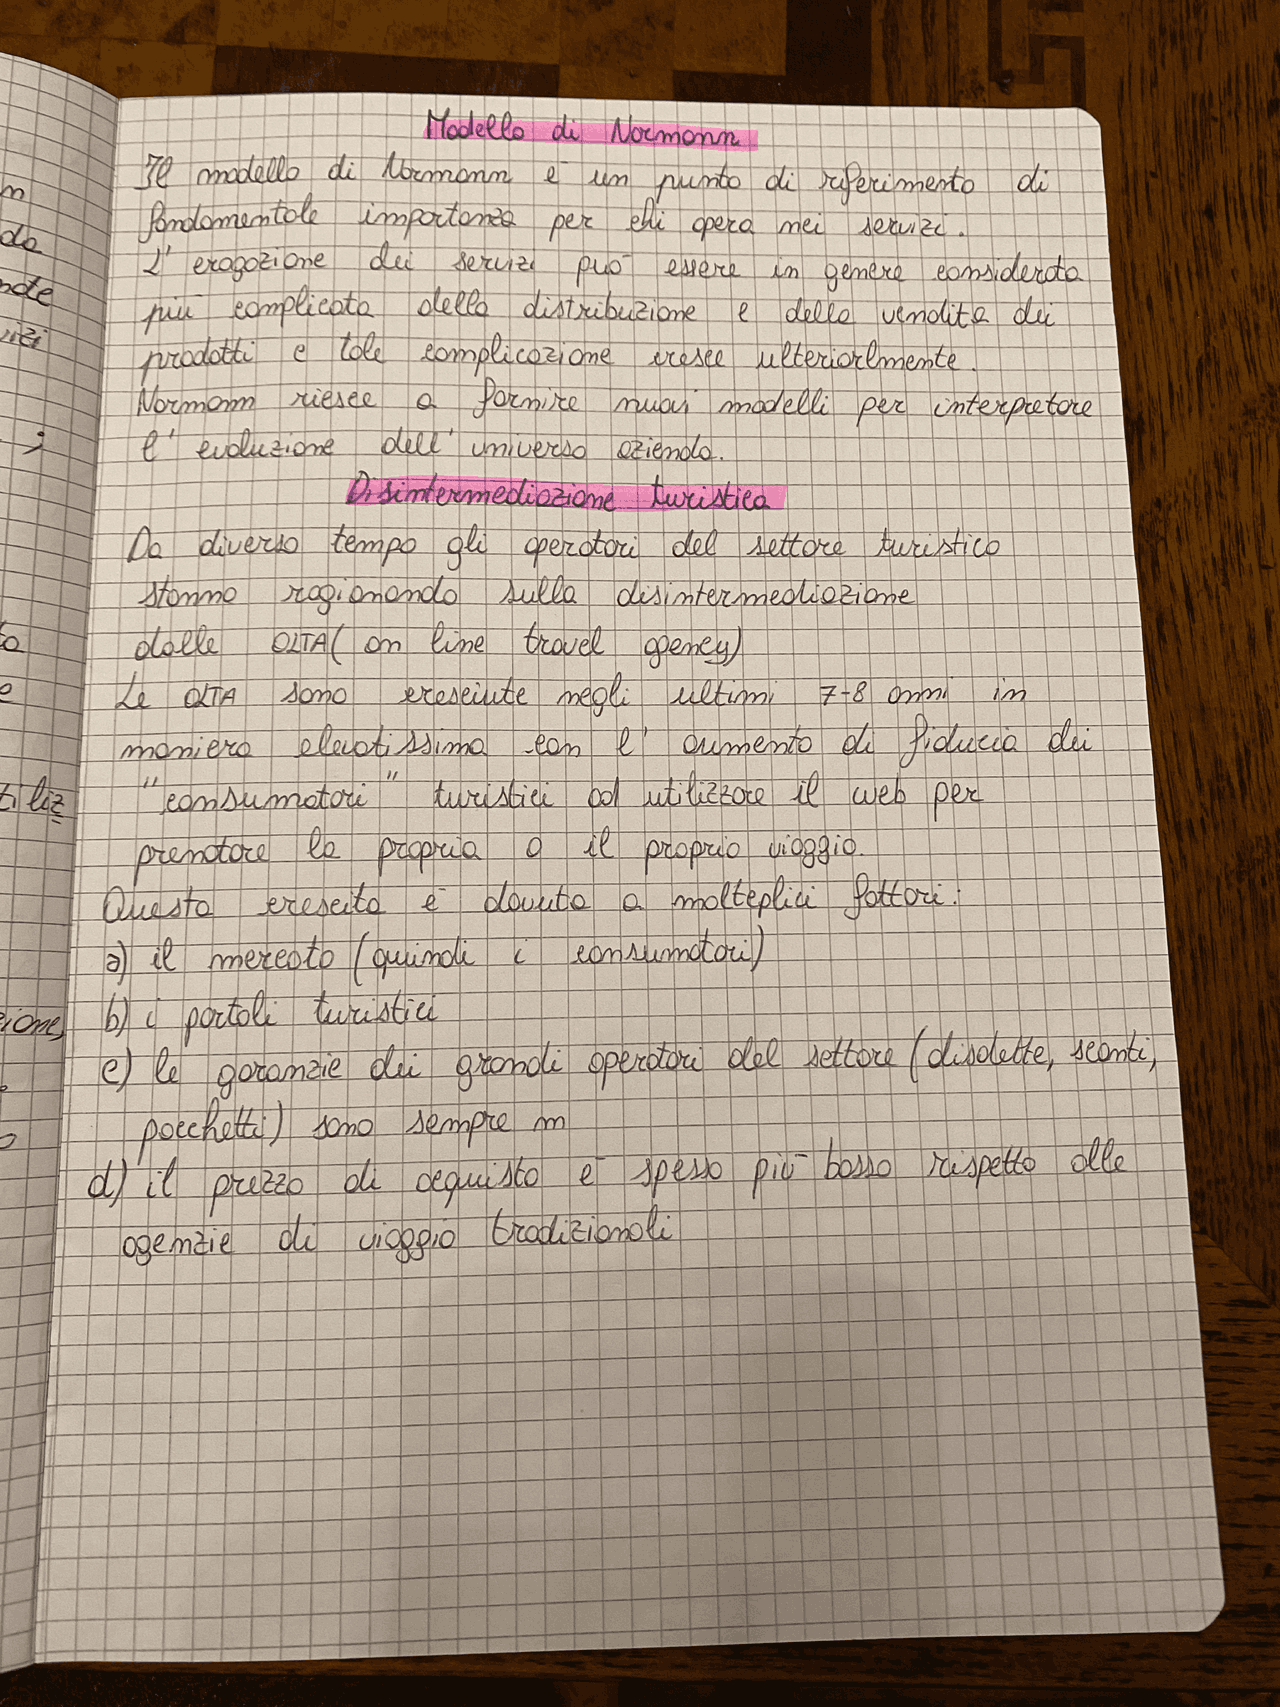 Modello di Normann
Il modello di Normann è un punto di riferimento di
fondamentale importanza per chi opera nei servizi.
L'erogazione dei servizi può essere in genere considerata
più complicata della distribuzione e della vendita dei
prodotti e tale complicazione cresce ulteriorlmente.
Normann riesce a fornire nuovi modelli per interpretare
l'evoluzione dell'universo azienda.
Disintermediazione turistica
Da diverso tempo gli operatori del settore turistico
stanno ragionando sulla disintermediazione
dalle OLTA( on line travel agency)
Le OLTA sono cresciute negli ultimi 7-8 anni in
maniera elevatissima con l'aumento di fiducia dei
"consumatori" turistici ad utilizzare il web per
prenotare la propria o il proprio viaggio.
Questa crescita è dovuta a molteplici fattori:
a) il mercato (quindi i consumatori)
b) i portali turistici
c) le garanzie dei grandi operatori del settore (disdette, sconti,
pacchetti) sono sempre m
d) il prezzo di acquisto è spesso più basso rispetto alle
agenzie di viaggio tradizionali